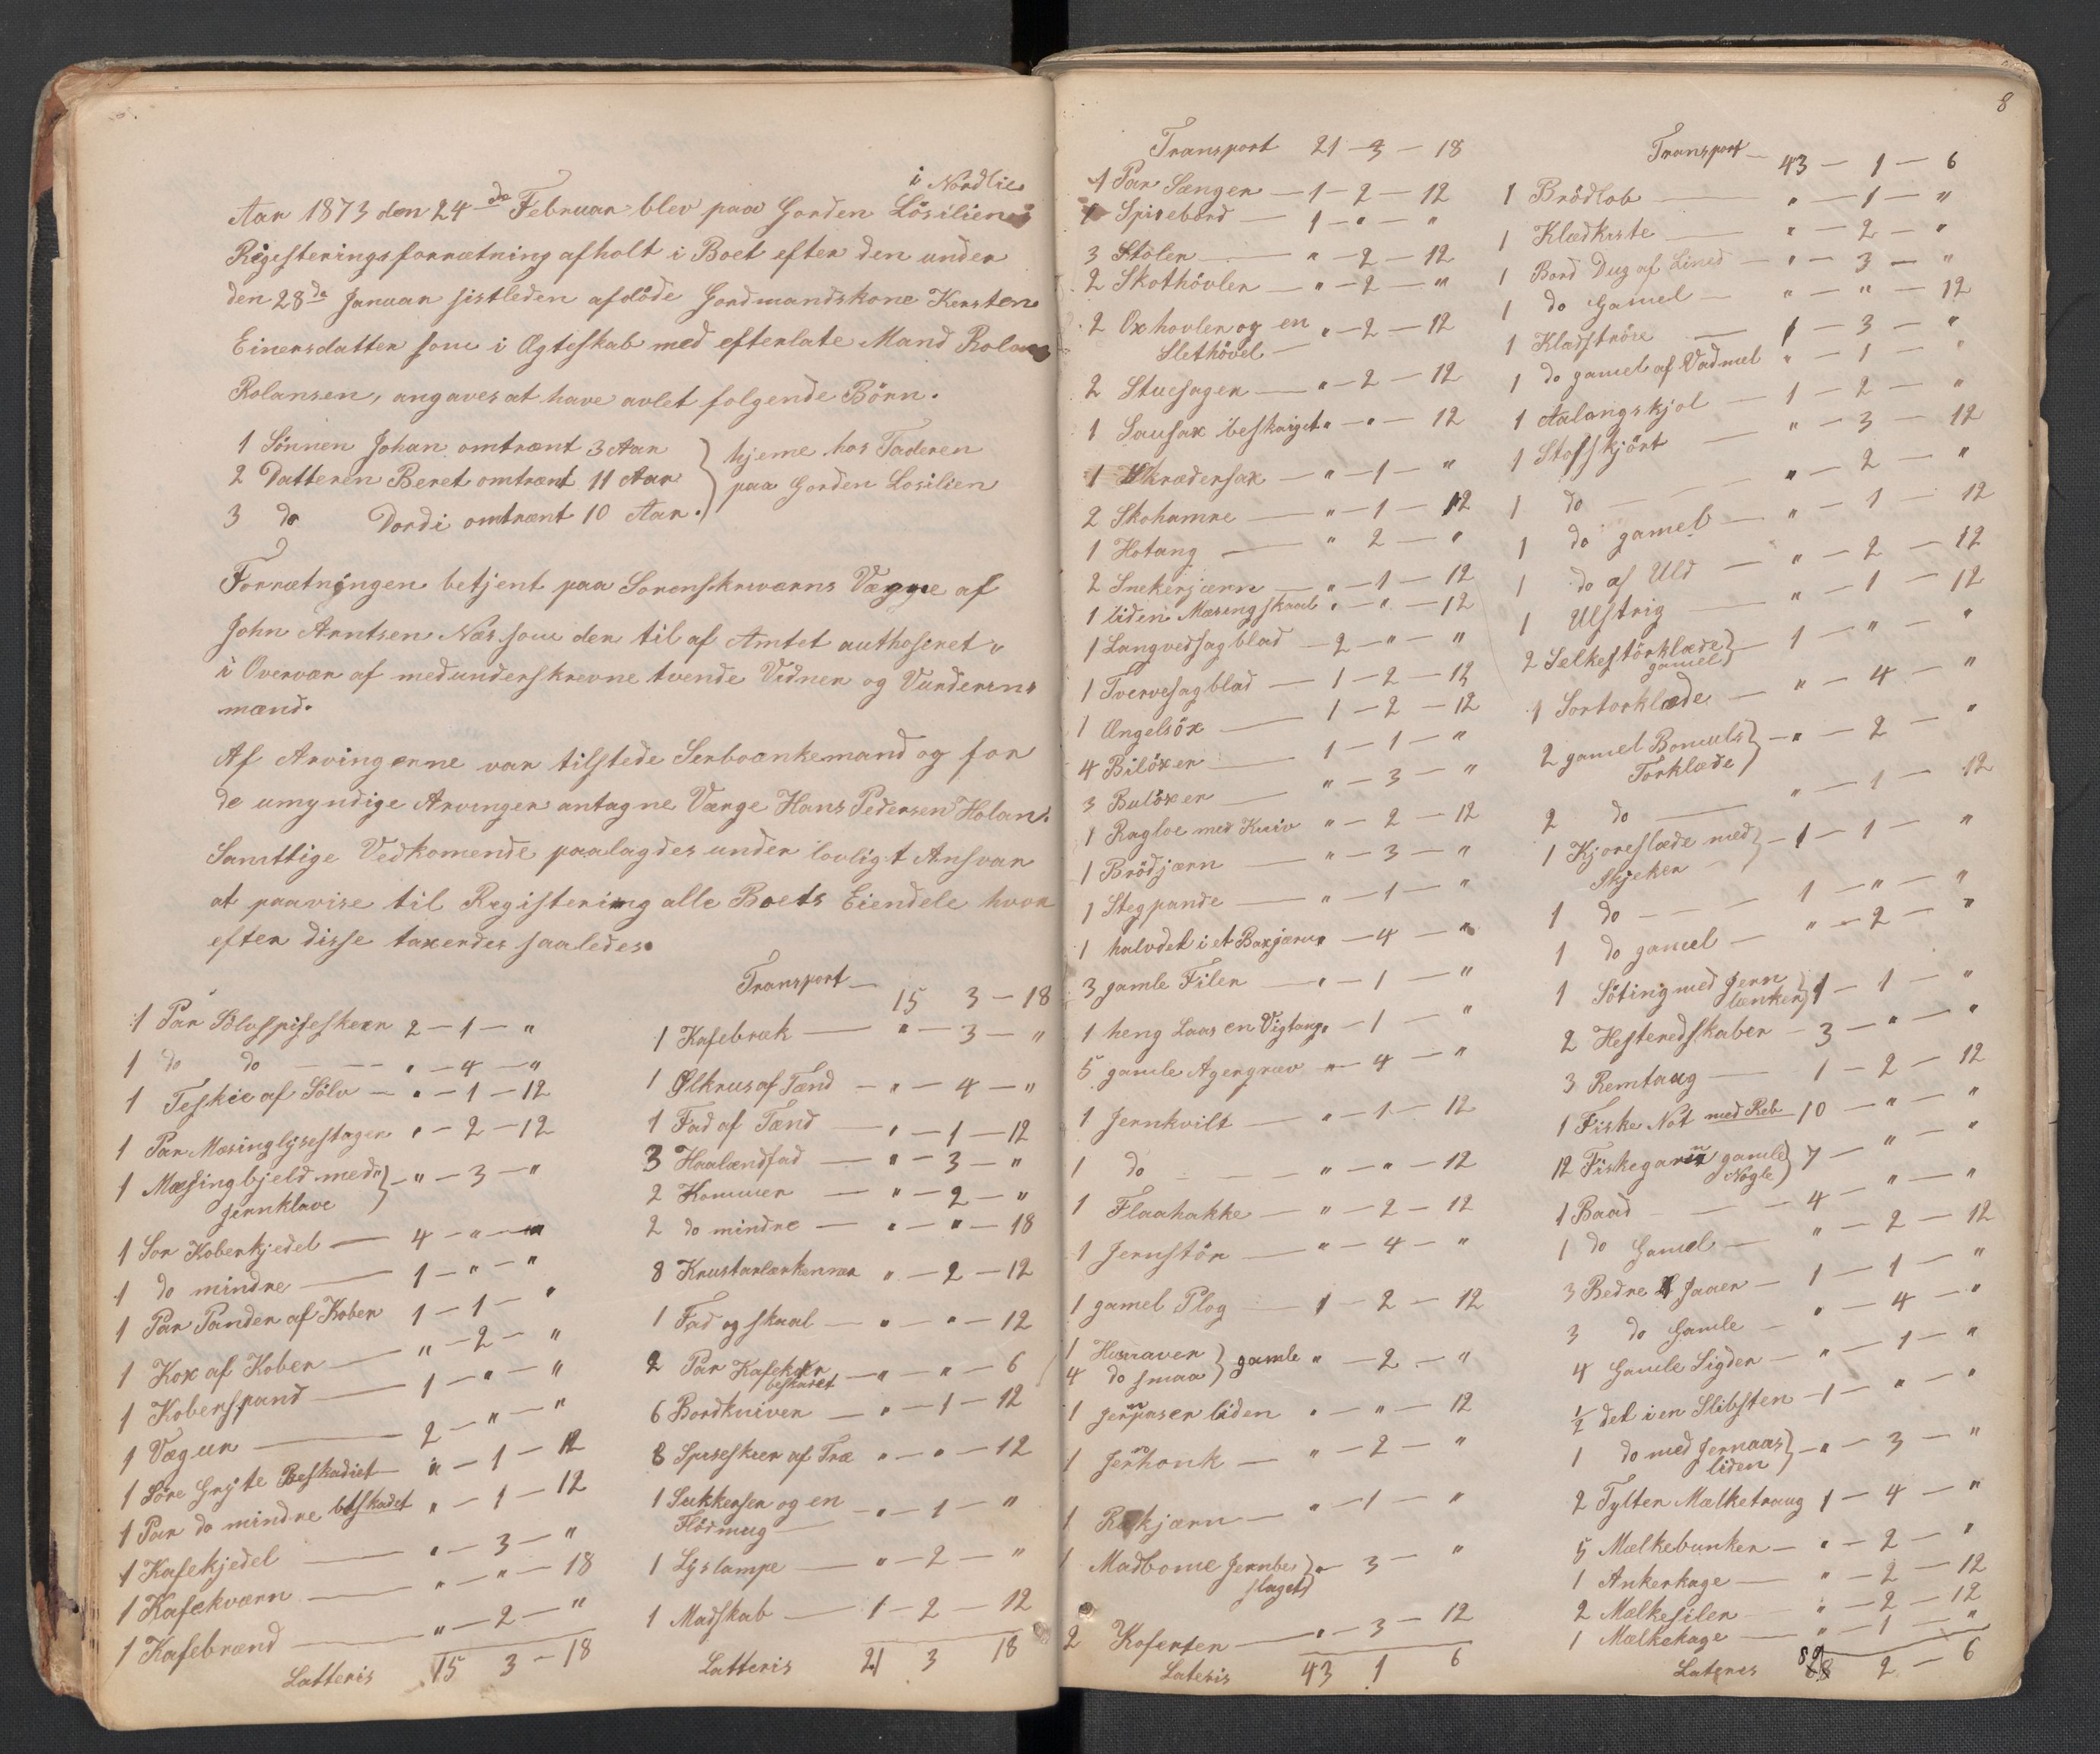 i Nordlie
Aar 1873 den 24de Februar blev paa Gorden Lösilien
Rigesteringsforrætning afholt i Boet efter den under
den 28de Januar sistleden afdöde Gordmandskone Kersten
Einersdatter som i Ægteskab med efterlate Mand Rolan
Rolansen, angaves at have avlet folgende Börn.
1 Sönnen Johan omtrænt 3 Aar
2 Datteren Beret omtrænt 11 Aar
3 do Dordi omtrænt 10 Aar.
hjeme hos Faderen
paa Gorden Losilien
Forrætningen betjent paa Sorenskrivæerns Vægne af
John Arntsen Næs som der til af Amtet authoseret
i Overvær af medunderskrevne tvende Vidner og Vurderins
mænd.
Af Arvingerne var tilstede Serboankemand og for
de umyndige Arvinger antagne Værge Hans Pedersen Holan.
Samttige Vedkomende paalagdes under lovligt Ansvar
at paavise til Registering alle Boets Eiendele hvor
efter disse taxerdes saaledes.
1 Par Sölvspiseskeer 2 - 1 - "
1 do do - - " - 4 - "
1 Teskie af Sölv - " - 1 - 12
1 Par Mæsinglysestager " - 2 - 12
1 Mæsingbjeld med } - " - 3 - "
jernklave
1 Sor Koberkjedel - 4 - " - "
1 do mindre - 1 - " - "
1 Par Pander af Kober 1 - 1 - "
1 Kox af Kober - " - 2 - "
1 Koberspand - 1 - " - "
1 Vægur - 2 - " - "
1 Söre Gryte Beskadiet - " - 1 - 12
1 Par do mindre beskadet " - 1 - 12
1 Kafekjedel - " - 3 - "
1 Kafekværn - " - " - 18
1 Kafebrænd - " - 2 - "
Latteris 15 3 - 18
Transport - 15 3 - 18
1 Kafebræk - " - 3 - "
1 Ølkrus af Tænd - " - 4 - "
1 Fad af Tænd - " - 1 - 12
3 Haalændfad - " - 3 - "
2 Kommer - " - 2 - "
2 do mindre - " - " - 18
8 Krustarlærkenner " - 2 - 12
1 Fad og skaal - " - " - 12
2 Par Kafekor - " - " - 6
beskadet
6 Bordkniver - " - 1 - 12
8 Spiseskeer af Træ " - " - 12
1 Sukkerser og en
Flödmug - " - 1 - "
1 Lyslampe - " - 2 - "
1 Madskab - 1 - 2 - 12
Latteris 21 3 18
8
Transport 21 - 3 - 18
1 Par Sænger - 1 - 2 - 12
1 Spisebord - 1 - " - "
3 Stoler - " - 2 - 12
2 Skothövler - " - 2 - "
2 Oxhovler og en " - 2 - 12
Slethövel
2 Stuesager - " - 2 - 12
1 Sausax beskaiget " - " - 12
1 Skrædersax - " - 1 - "
2 Skohamre - " - 1 - 12
1 Hotang - " 2 - "
2 Snekerjærn - " - 1 - 12
1 liden Mæsingskaal " - " - 12
1 Langvedsagblad - 2 - " - "
1 Tvervesagblad - 1 - 2 - 12
1 Ængelsöx - 1 - 2 - 12
4 Bilöxer - 1 - 1 - "
3 Bulöxer - " - 3 - "
1 Ragloe med Kniv " - 2 - 12
1 Brödjærn - " - 3 - "
1 Stegpande - " - 1 - "
1 halvdel i et Baxjærn " - 4 - "
3 gamle Filer - " - 1 - "
1 heng Laas en Vigtang " - 1 - "
5 gamle Agergræv " - 4 - "
1 Jernkvilt - " - 1 - 12
1 do - - " - " - 12
1 Flaahakke - " - 2 - 12
1 Jernstör - " - 4 - "
1 gamel Plog - 1 - 2 - 12
1 Hesraver
4 do smaa } gamle " - 2 - "
1 jernpaser liden " - " - 12
1 Jernhonk - " - 2 - "
1 Rækjærn - " - 1 - "
1 Madbome Jernbe } " - 3 - "
slaget
2 Koferter - " - 3 - 12
Lateris 43 1 6
Transport - 43 - 1 - 6
1 Brödlob - " - 1 - "
1 Klædkiste - " - 2 - "
1 Bord Dug af Lined - " - 3 - "
1 do Gamel - " - " - 12
1 Kladströie - 1 - 3 - "
1 do gamel af Vadmel " - 1 - "
1 Aalangskjol - 1 - 2 - "
1 Stofskjört - " - 3 - 12
1 do - - " - 2 - "
1 do gamel - " - 1 - 12
1 do af Uld - " - 2 - 12
1 Ulstrig - " - 1 - 12
2 Selkestörklæde } - 1 - " - "
gamel
1 Sortorklæde - " - 4 - "
2 gamel Bomuls } - " - 2 - "
Torklæde
2 do - " - 1 - 12
1 Kjoreslæde med } - 1 - 1 - "
Skjeker
1 do - - 1 - " - "
1 do gamel - " - 2 - "
1 Söting med Jern } 1 - 1 - "
lænker
2 Hesteredskaber - 3 - " - "
3 Remtaug - 1 - 2 - 12
1 Fiske Not med Reb - 10 - " - "
12 Fiskegarn gamle } 7 - " - "
Nogle
1 Baad - - 4 - " - "
1 do Gamel - " - 2 - 12
3 Bedre Ljaaer - 1 - 1 - "
3 do Gamle - " - 4 - "
4 Gamle Sigder - " - 1 - "
1/2 del i en Slibsten - 1 - " - "
1 do med Jernaas } - " - 3 - "
liden
2 Tylter Mælketraug 1 - 4 - "
5 Mælkebunker - " - 2 - "
1 Ankerkage - " - 2 - 12
2 Mælkesiler - " - 2 - 12
1 Mælkekage - " - 1 - "
Lateres 89 2 - 6